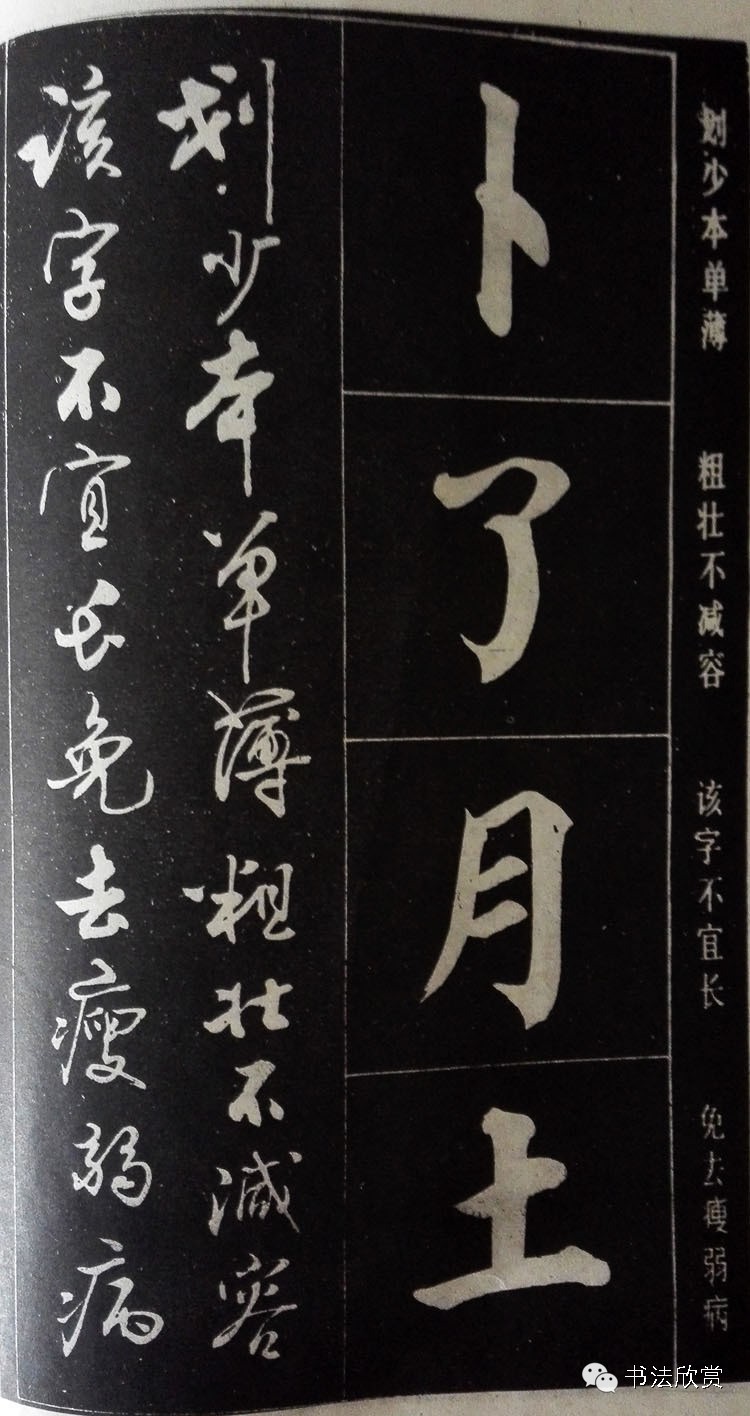 划少本单薄 粗壮不减容 该字不宜长 免去瘦弱病
卜
了
月
土
划少本单薄粗壮不减容
该字不宜长免去瘦弱病
书法欣赏